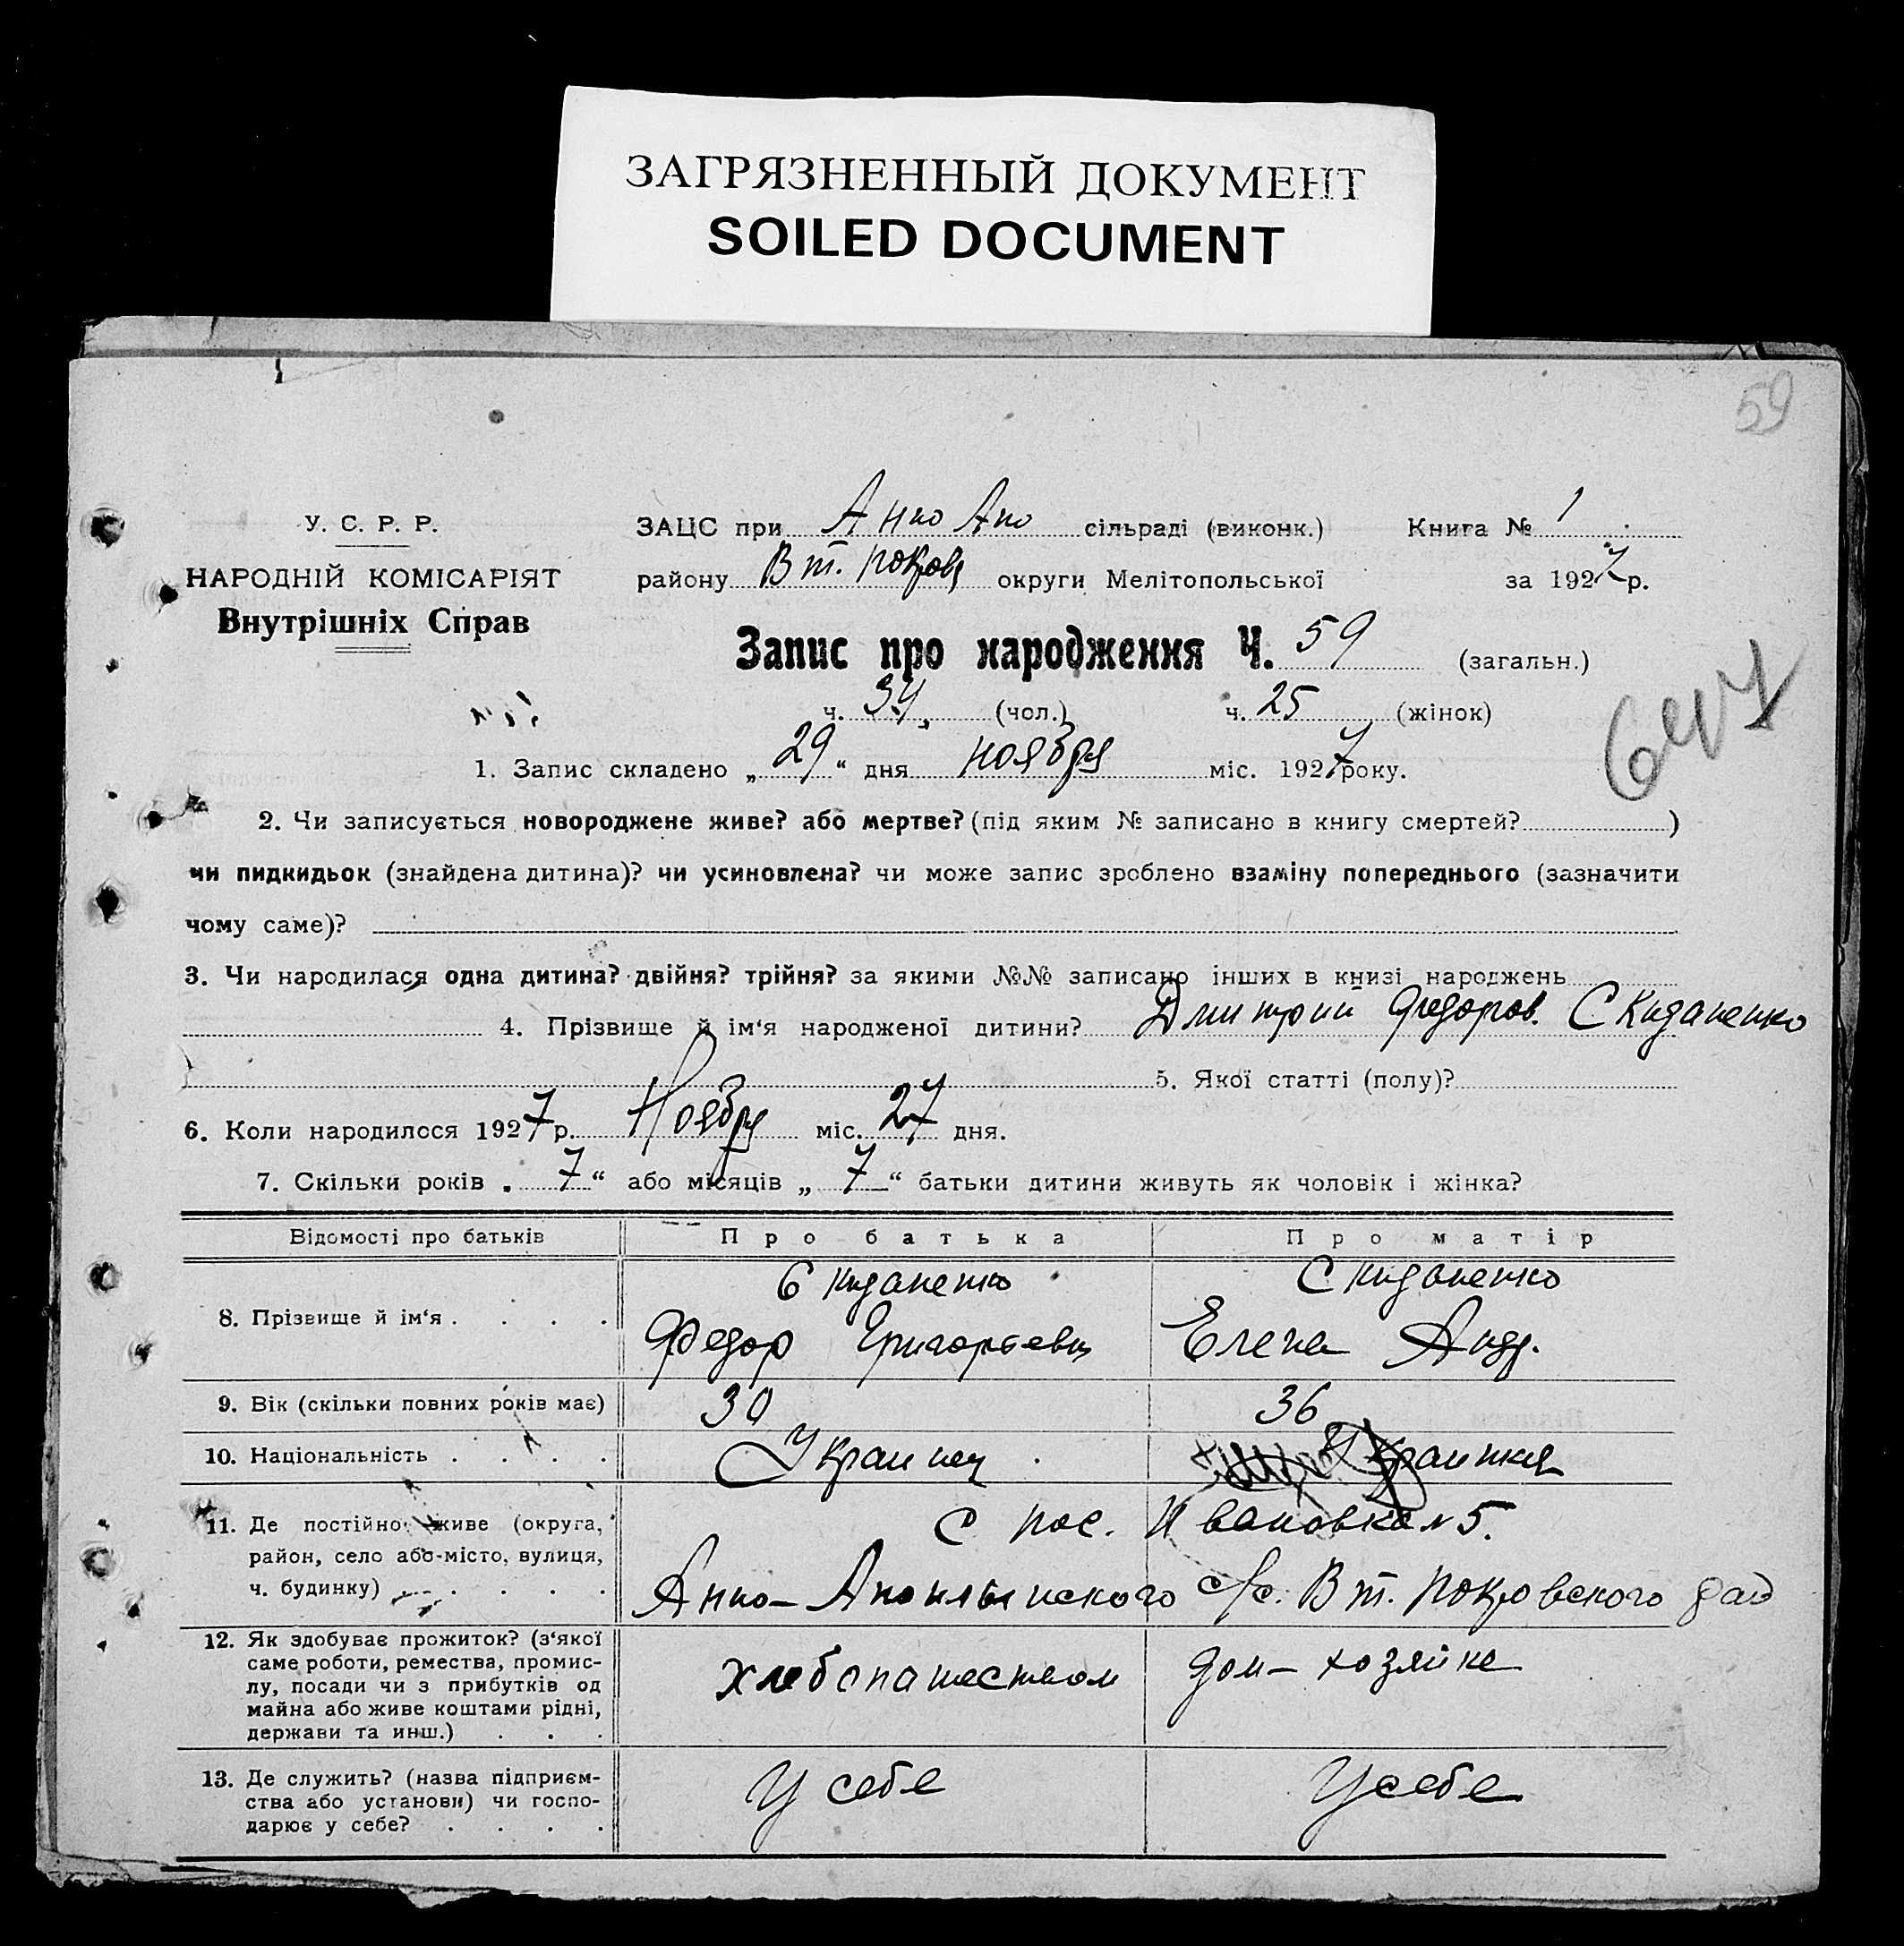 ЗАГРЯЗНЕННЫЙ ДОКУМЕНТ
SOILED DOCUMENT
59
У. С. Р. Р.
НАРОДНІЙ КОМІСАРІЯТ
Внутрішніх Справ
ЗАЦС при Анно Апо сільраді (виконк.) Книга № 1
району Вт. покров округи Мелітопольської за 1927 р.
Запис про народження Ч. 59 (загальн.)
ч. 34 (чол.) ч. 25 (жінок)
1. Запис складено „29“ дня ноября міс. 1927 року.
2. Чи записується новороджене живе? або мертве? (під яким № записано в книгу смертей? )
чи пидкидьок (знайдена дитина)? чи усиновлена? чи може запис зроблено взаміну попереднього (зазначити
чому саме)?
3. Чи народилася одна дитина? двійня? трійня? за якими №№ записано інших в книзі народжень
4. Прізвище й ім‘я народженої дитини? Дмитрий Федоров. Скиданенко
5. Якої статті (полу)?
6. Коли народилося 1927 р. Ноября міс. 27 дня.
7. Скільки років „7“ або місяців „7“ батьки дитини живуть як чоловік і жінка?
Відомості про батьків Про батька Про матір
8. Прізвище й ім‘я . . . . Скиданенко Федор Григорьевич Скиданенко Елена Андр.
9. Вік (скільки повних років має) 30 36
10. Національність . . . . Украинец Украинка
11. Де постійно живе (округа, район, село або місто, вулиця, ч. будинку) . . . . с пос. Ивановка № 5.
Анно-Апоильинского с/с. Вт. покровского рай
12. Як здобуває прожиток? (з‘якої саме роботи, ремества, промислу, посади чи з прибутків од майна або живе коштами рідні, держави та инш.) . . . хлебопашеством дом-хозяйка
13. Де служить? (назва підприємства або установи) чи господарює у себе? . . . . У себе У себе